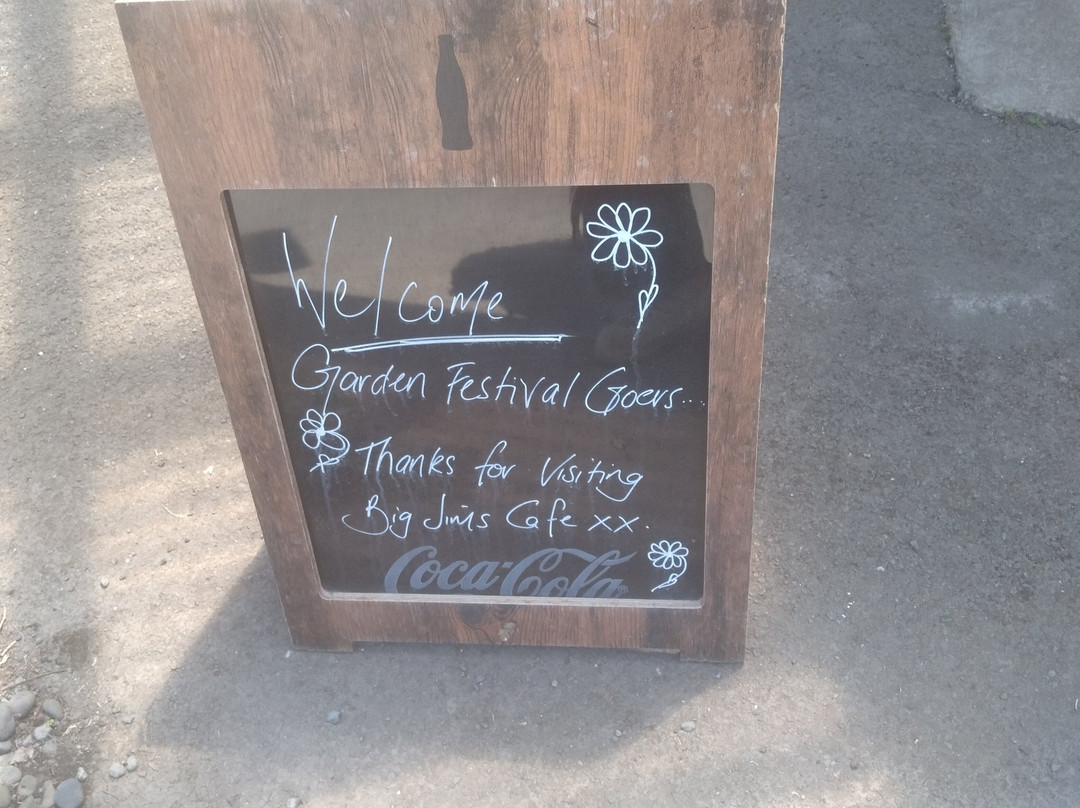 Welcome
Garden Festival Goers...
Thanks for Visiting
Big Jim's Cafe xx.
Coca-Cola